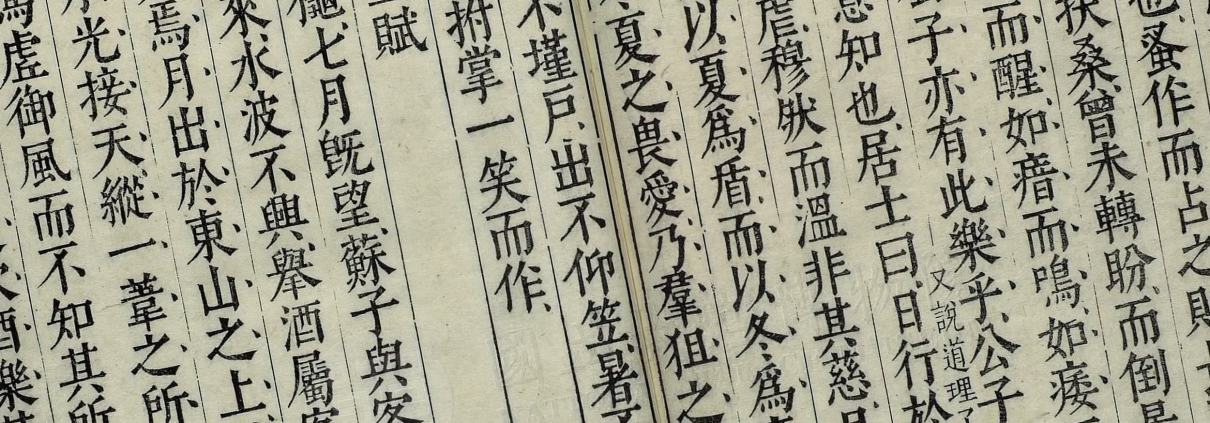 也蚤作而占之則
扶桑曾未轉盼而倒景
而醒如瘖而鳴如痿
子亦有此樂乎公子
又說道理了
知也居士曰日行於
虐穆然而溫非其慈且
以夏爲盾而以冬爲
夏之畏愛乃羣狙之
不墐戶出不仰笠暑不
拊掌一笑而作
賦
七月既望蘇子與客
來水波不興舉酒屬客
焉月出於東山之上
光接天縱一葦之所
虛御風而不知其所
酒樂甚